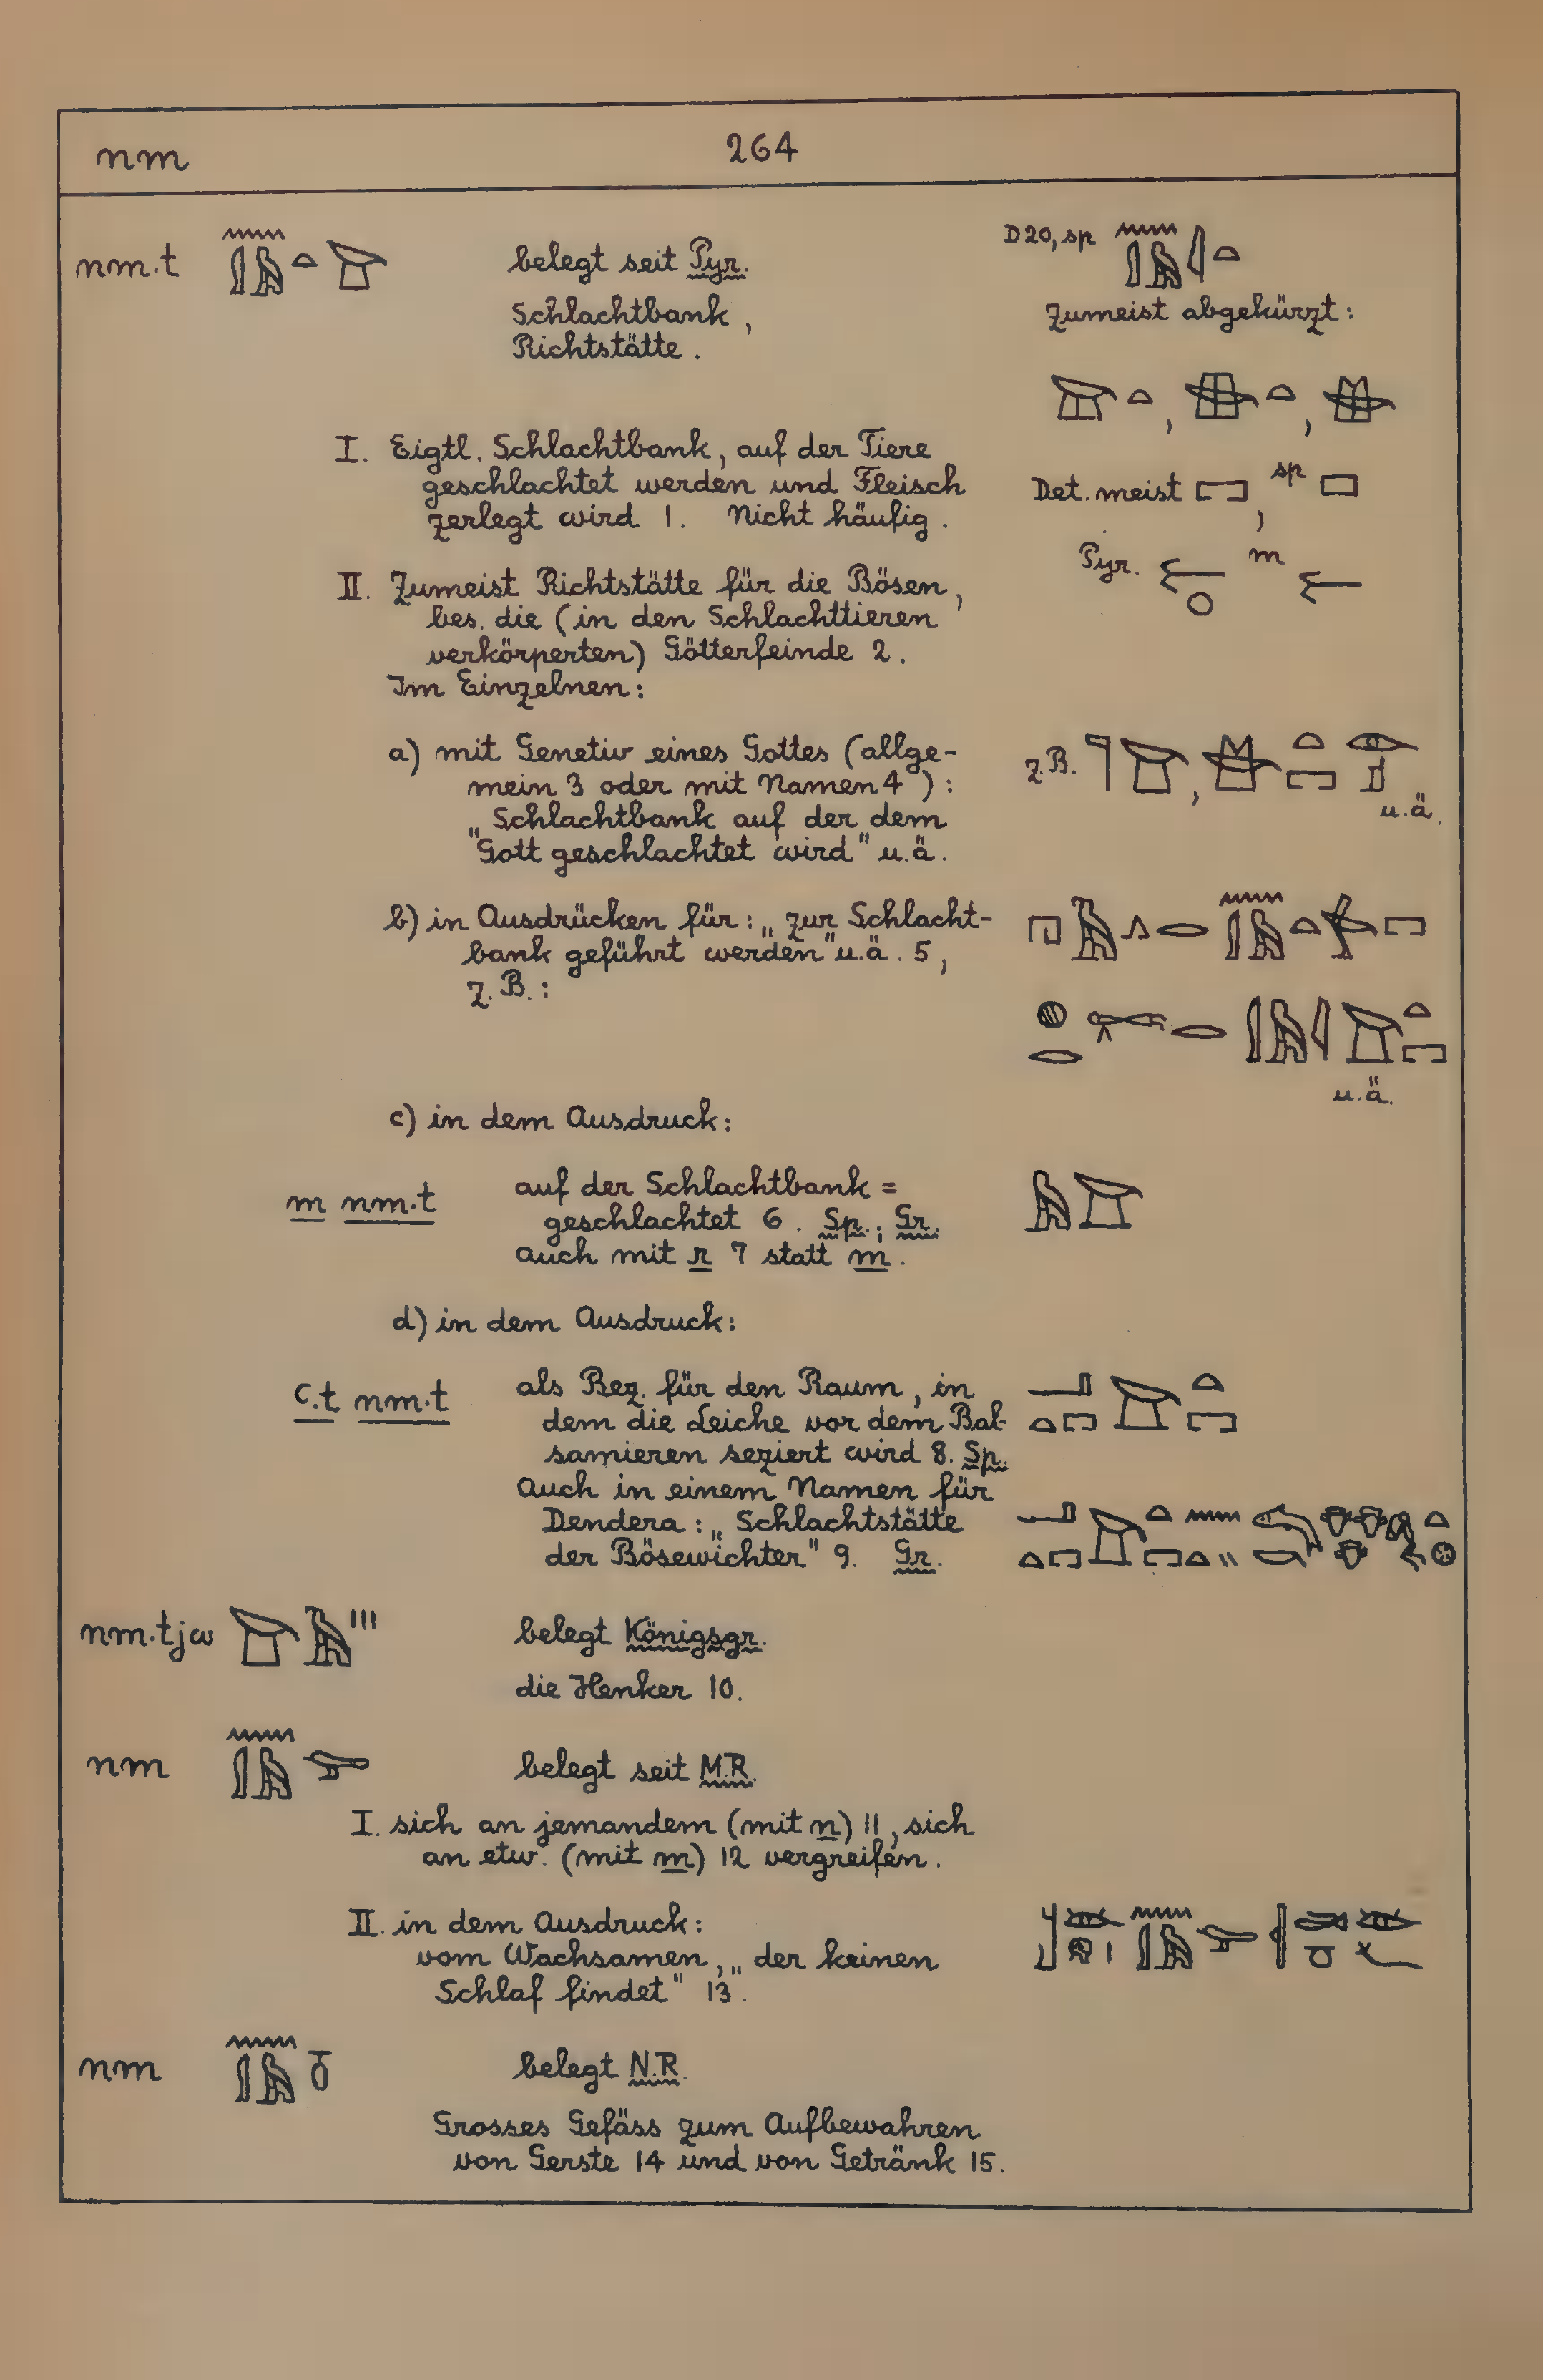 nm 264
nm.t belegt seit Pyr. D20, sp
Schlachtbank,
Richtstätte.
Zumeist abgekürzt:
I. Eigtl. Schlachtbank, auf der Tiere
geschlachtet werden und Fleisch
zerlegt wird 1. Nicht häufig.
Det. meist , sp
Pyr. m
II. Zumeist Richtstätte für die Bösen,
bes. die (in den Schlachttieren
verkörperten) Götterfeinde 2.
Im Einzelnen:
a) mit Genetiv eines Gottes (allge-
mein 3 oder mit Namen 4):
„Schlachtbank auf der dem
Gott geschlachtet wird" u.ä.
z.B. , u.ä.
b) in Ausdrücken für: „zur Schlacht-
bank geführt werden" u.ä. 5,
z.B.:
u.ä.
c) in dem Ausdruck:
m nm.t auf der Schlachtbank =
geschlachtet 6. Sp.; Gr.
auch mit r 7 statt m.
d) in dem Ausdruck:
c.t nm.t als Bez. für den Raum, in
dem die Leiche vor dem Bal-
samieren seziert wird 8. Sp.
Auch in einem Namen für
Dendera: „Schlachtstätte
der Bösewichter" 9. Gr.
nm.tjw belegt Königsgr.
die Henker 10.
nm belegt seit M.R.
I. sich an jemandem (mit n) 11, sich
an etw. (mit m) 12 vergreifen.
II. in dem Ausdruck:
vom Wachsamen, „der keinen
Schlaf findet" 13.
nm belegt N.R.
Grosses Gefäss zum Aufbewahren
von Gerste 14 und von Getränk 15.